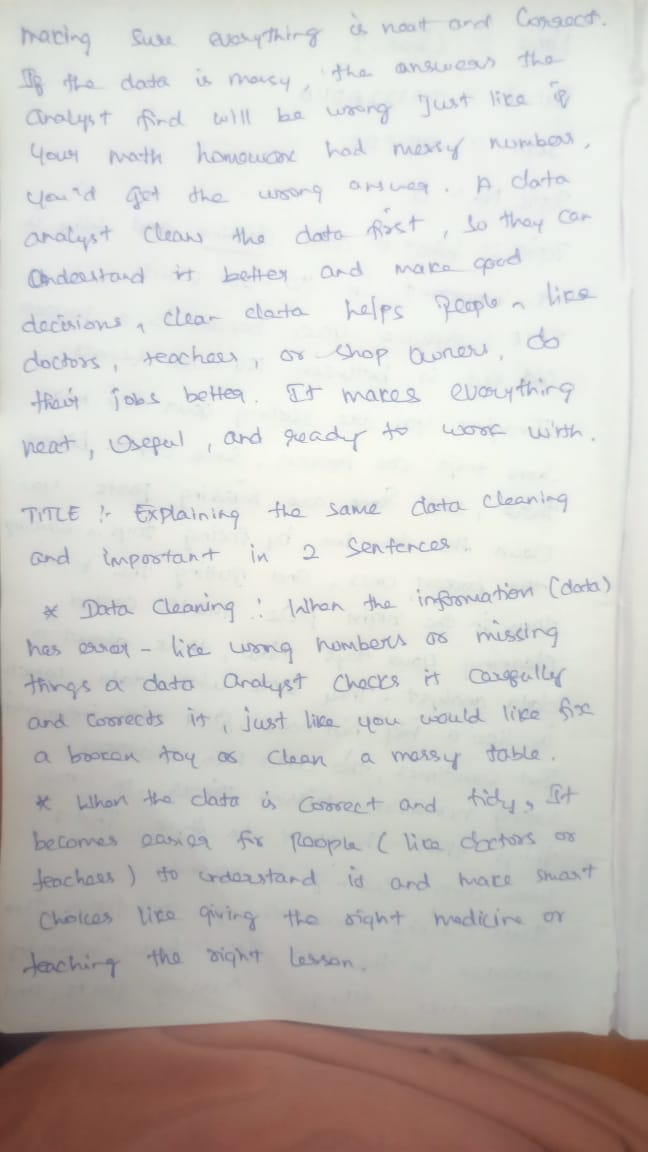 making sure everything is neat and Correct.
If the data is messy, the answears the
analyst find will be wrong Just like if
your math homework had messy numbers,
you'd get the wrong answer. A data
analyst cleans the data first, so they can
understand it better and make good
decisions, clean data helps people, like
doctors, teachers, or shop owners, do
their jobs better. It makes everything
neat, useful, and ready to work with.
TITLE :- Explaining the same data cleaning
and important in 2 Sentences.
* Data Cleaning : When the information (data)
has error - like wrong numbers or missing
things a data analyst checks it carefully
and corrects it, just like you would like fix
a broken toy or clean a messy table.
* When the data is correct and tidy, It
becomes easier for people (like doctors or
teachers) to understand it and make smart
choices like giving the right medicine or
teaching the right lesson.